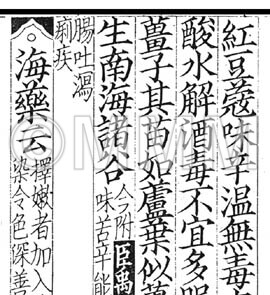 紅豆蔻味辛温無毒
酸水解酒毒不宜多服
薑子其苗如蘆葉似薑
生南海諸谷今附臣禹
味苦辛能
腸吐瀉
痢疾
海藥云擇嫩者加入
染令色深善